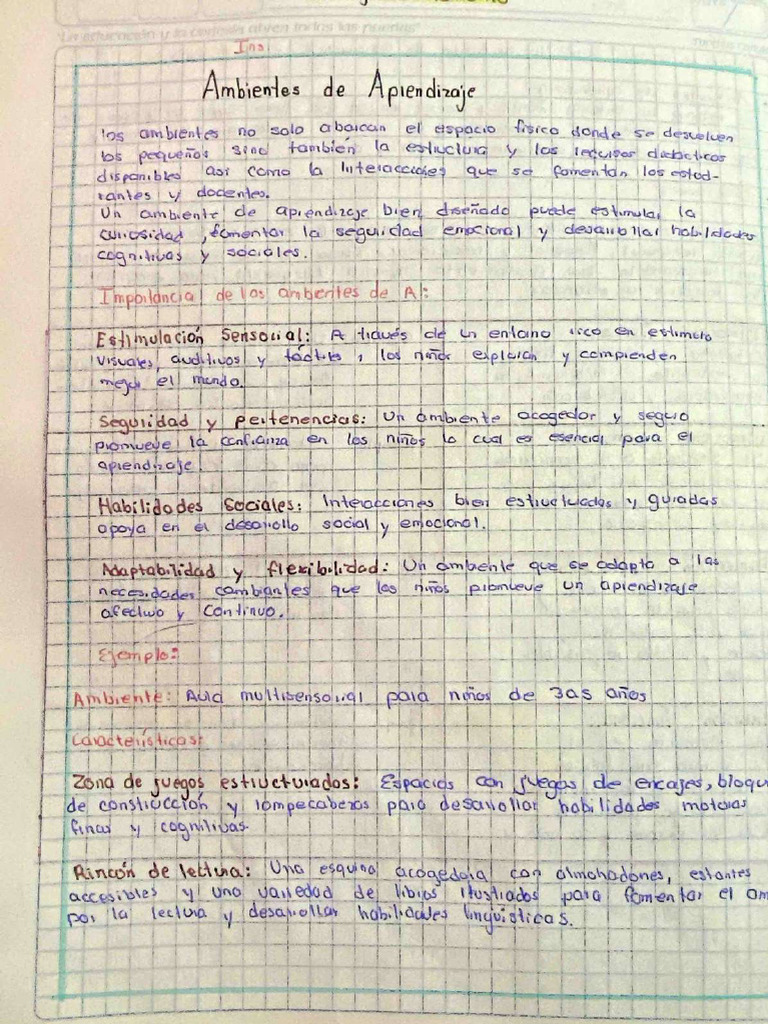 Ins
Ambientes de Aprendizaje
los ambientes no solo abarcan el espacio físico donde se desvuelven
los pequeños sino también la estructura y los recursos didacticos
disponibles así como la Interacciones que se fomentan los estud-
iantes y docentes.
Un ambiente de aprendizaje bien diseñado puede estimular la
curiosidad, fomentar la seguridad emocional y desarrollar habilidades
cognitivas y sociales.
Importancia de los ambientes de A:
Estimulación Sensorial: A través de un entorno rico en estimulo
visuales, auditivos y táctiles, los niños exploran y comprenden
mejor el mundo.
Seguridad y pertenencias: Un ambiente acogedor y seguro
promueve la confianza en los niños lo cual es esencial para el
aprendizaje
Habilidades Sociales: Interacciones bien estructuradas y guiadas
apoya en el desarrollo social y emocional.
Adaptabilidad y flexibilidad: Un ambiente que se adapta a las
necesidades cambiantes que los niños promueve un aprendizaje
afectivo y Continuo.
Ejemplo:
Ambiente: Aula multisensorial para niños de 3 a 5 años
Características:
Zona de juegos estructurados: Espacios con juegos de encajes, bloqu
de construcción y rompecabezas para desarrollar habilidades motoras
finas y cognitivas.
Rincón de lectura: Una esquina acogedora con almohadones, estantes
accesibles y una variedad de libros ilustrados para fomentar el am
por la lectura y desarrollar habilidades lingüísticas.